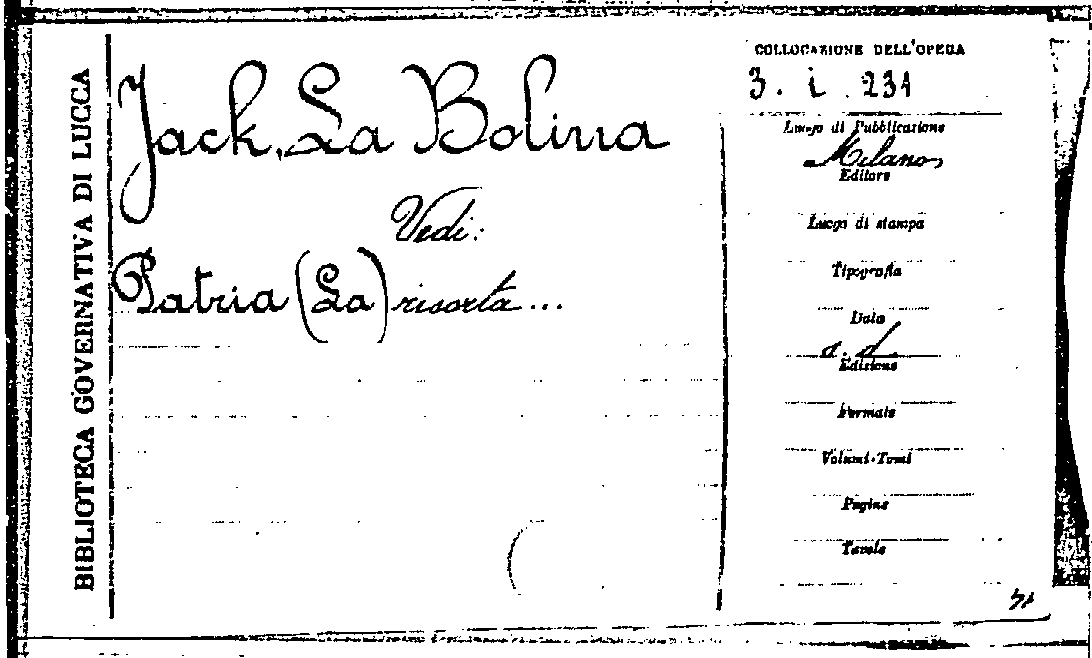 BIBLIOTECA GOVERNATIVA DI LUCCA
Jack, La Bolina
Vedi:
Patria (La) risorta...
COLLOCAZIONE DELL'OPERA
3. i. 231
Luogo di Pubblicazione
Milano
Editore
Luogo di stampa
Tipografia
Data
s. d.
Edizione
Formato
Volumi-Tomi
Pagine
Tavole